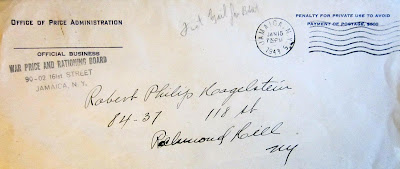 OFFICE OF PRICE ADMINISTRATION
OFFICIAL BUSINESS
WAR PRICE AND RATIONING BOARD
90-02 161st STREET
JAMAICA, N. Y.
JAMAICA, N.Y.
JAN 10
1943
PENALTY FOR PRIVATE USE TO AVOID
PAYMENT OF POSTAGE, $300
Robert Philip Hagelstein
84-37 118 St
Richmond Hill
NY